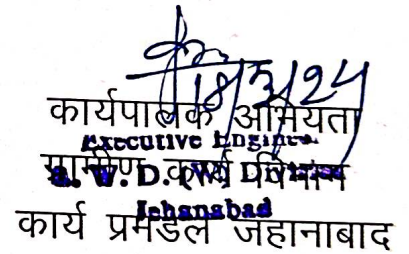 18/3/24
कार्यपालक अभियंता
Executive Engineer
ग्रामीण कार्य विभाग
R. W. D. (W) Division
Jehanabad
कार्य प्रमंडल जहानाबाद